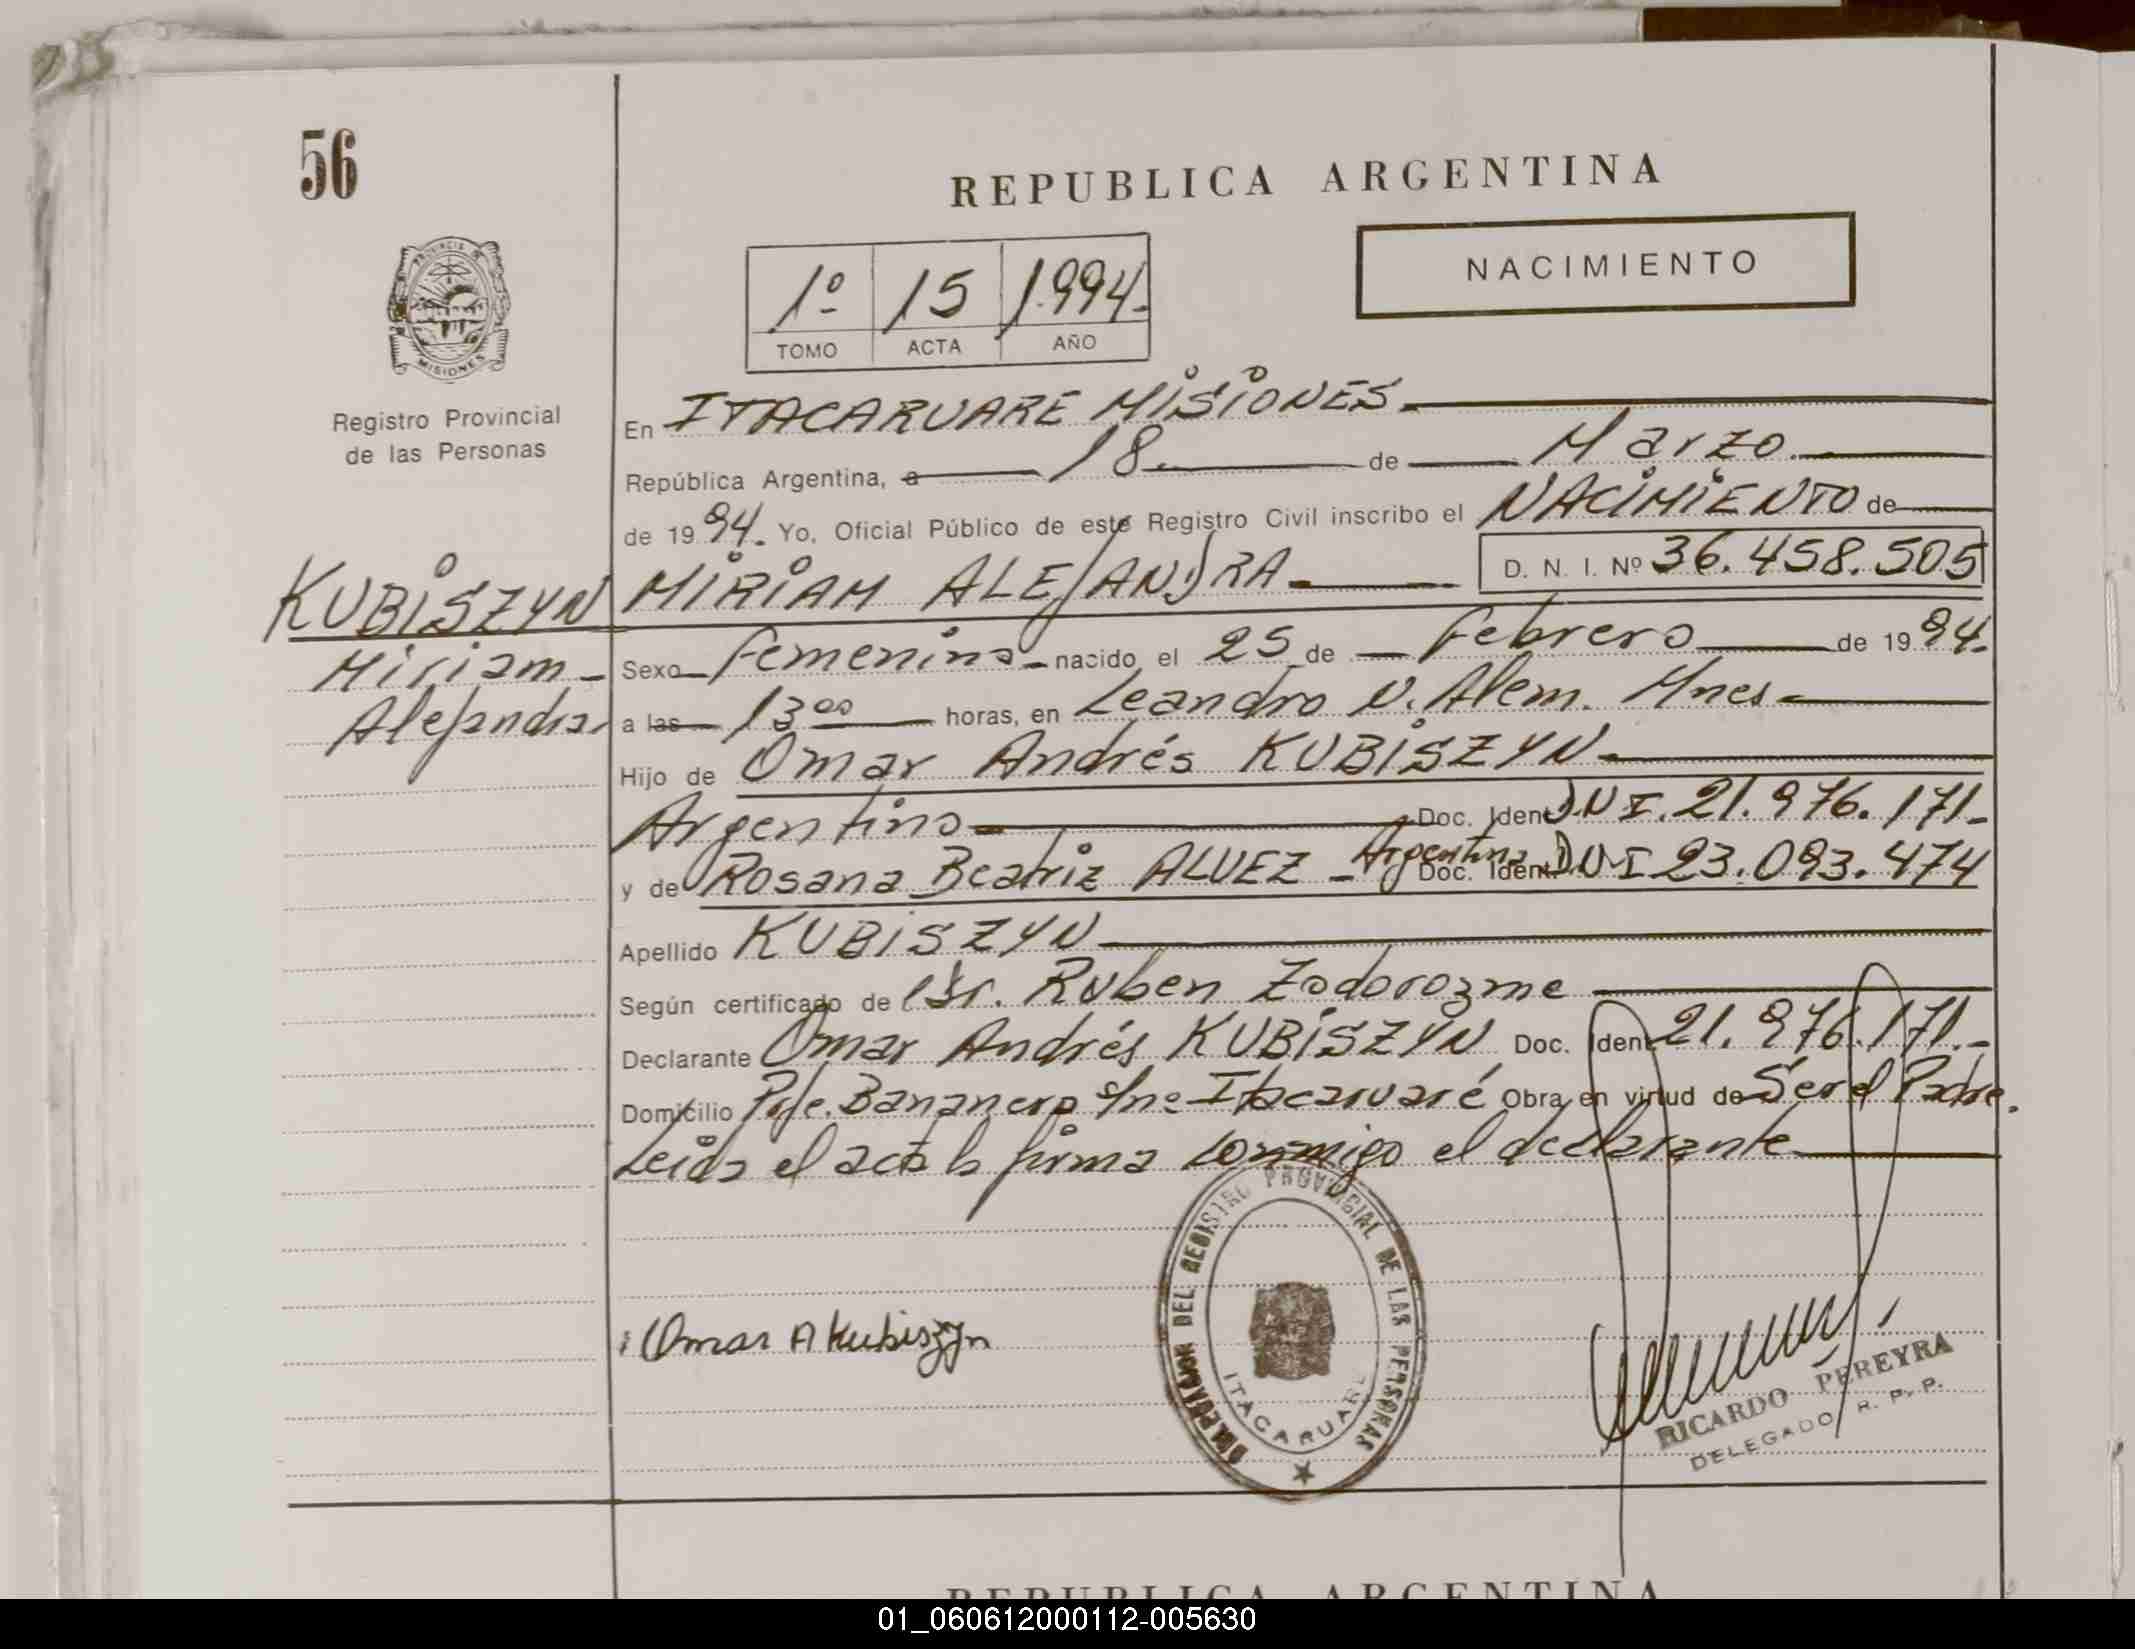 56
REPUBLICA ARGENTINA
NACIMIENTO
1º 15 1.994.
TOMO ACTA AÑO
PROVINCIA DE MISIONES
Registro Provincial
de las Personas
En ITACARUARE MISIONES.
República Argentina, a 18 de Marzo
de 1994. Yo, Oficial Público de este Registro Civil inscribo el NACIMIENTO de
KUBISZYN MIRIAM ALEJANDRA D. N. I. Nº 36.458.505
Miriam
Alejandra
Sexo Femenino nacido el 25 de Febrero de 1994.
a las 13 00 horas, en Leandro N. Alem. Mnes
Hijo de Omar Andrés KUBISZYN
Argentino Doc. Ident DNI. 21.976.171
y de Rosana Beatriz ALVEZ - Argentina Doc. Ident DNI 23.093.474
Apellido KUBISZYN
Según certificado de Dr. Ruben Zodorozme
Declarante Omar Andrés KUBISZYN Doc. Ident 21.976.171.-
Domicilio Pje. Bananera Itacaruaré Obra en virtud de Ser el Padre.
Leida el acta la firma conmigo el declarante
Omar A Kubiszyn
DELEGACION DEL REGISTRO PROVINCIAL DE LAS PERSONAS
ITACARUARE
RICARDO PEREYRA
DELEGADO R. P. P.
REPUBLICA ARGENTINA
01_060612000112-005630